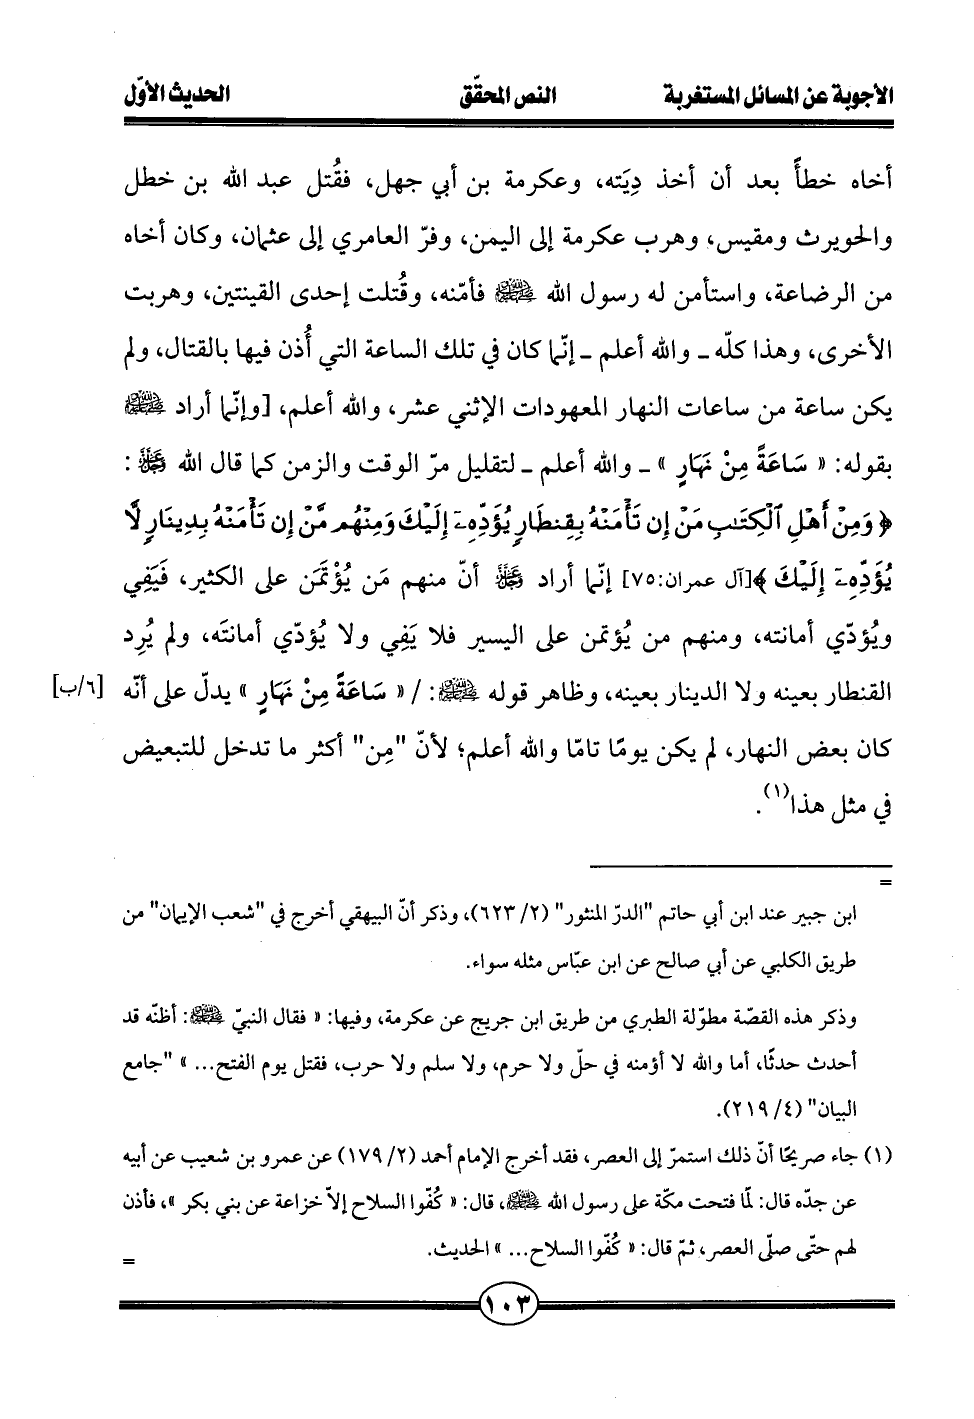 الأجوبة عن المسائل المستغربة النص المحقّق الحديث الأوّل
أخاه خطأً بعد أن أخذ دِيَته، وعكرمة بن أبي جهل، فقُتل عبد الله بن خطل
والحويرث ومقيس، وهرب عكرمة إلى اليمن، وفرّ العامري إلى عثمان، وكان أخاه
من الرضاعة، واستأمن له رسول الله ﷺ فأمّنه، وقُتلت إحدى القينتين، وهربت
الأخرى، وهذا كلّه ـ والله أعلم ـ إنّما كان في تلك الساعة التي أُذن فيها بالقتال، ولم
يكن ساعة من ساعات النهار المعهودات الإثني عشر، والله أعلم، [وإنّما أراد ﷺ
بقوله: « سَاعَةً مِنْ نَهَارٍ » ـ والله أعلم ـ لتقليل مرّ الوقت والزمن كما قال الله عَجَلَّ :
﴿ وَمِنْ أَهْلِ ٱلْكِتَٰبِ مَنْ إِن تَأْمَنْهُ بِقِنطَارٍ يُؤَدِّهِۦٓ إِلَيْكَ وَمِنْهُم مَّنْ إِن تَأْمَنْهُ بِدِينَارٍ لَّا
يُؤَدِّهِۦٓ إِلَيْكَ ﴾[آل عمران:٧٥] إنّما أراد عَجَلَّ أنّ منهم مَن يُؤْتَمَن على الكثير، فَيَفِي
ويُؤدّي أمانته، ومنهم من يُؤتمن على اليسير فلا يَفِي ولا يُؤدّي أمانتَه، ولم يُرِد
القنطار بعينه ولا الدينار بعينه، وظاهر قوله ﷺ: / « سَاعَةً مِنْ نَهَارٍ » يدلّ على أنّه [٦/ب]
كان بعض النهار، لم يكن يومًا تامّا والله أعلم؛ لأنّ "مِن" أكثر ما تدخل للتبعيض
في مثل هذا(١).
=
ابن جبير عند ابن أبي حاتم "الدرّ المنثور" (٢/ ٦٢٣)، وذكر أنّ البيهقي أخرج في "شعب الإيمان" من
طريق الكلبي عن أبي صالح عن ابن عبّاس مثله سواء.
وذكر هذه القصّة مطوّلة الطبري من طريق ابن جريج عن عكرمة، وفيها: « فقال النبيّ ﷺ: أظنّه قد
أحدث حدثًا، أما والله لا أؤمنه في حلّ ولا حرم، ولا سلم ولا حرب، فقتل يوم الفتح... » "جامع
البيان" (٤/ ٢١٩).
(١) جاء صريحًا أنّ ذلك استمرّ إلى العصر، فقد أخرج الإمام أحمد (٢/ ١٧٩) عن عمرو بن شعيب عن أبيه
عن جدّه قال: لمّا فتحت مكّة على رسول الله ﷺ، قال: « كُفّوا السلاح إلاّ خزاعة عن بني بكر »، فأذن
لهم حتّى صلّى العصر، ثمّ قال: « كُفّوا السلاح... » الحديث.
=
١٠٣